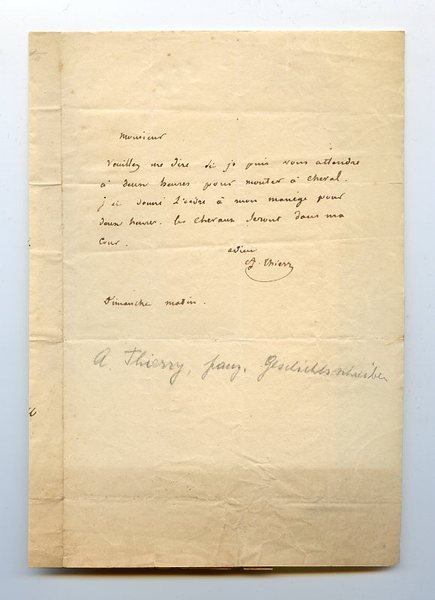 Monsieur
Veuillez me dire si je puis vous attendre
à deux heures pour monter à cheval.
j'ai donné l'ordre à mon manège pour
deux heures. les chevaux seront dans ma
cour.
adieu
A. Thierry
Dimanche matin.
A Thierry, franz. Geschichtsschreiber